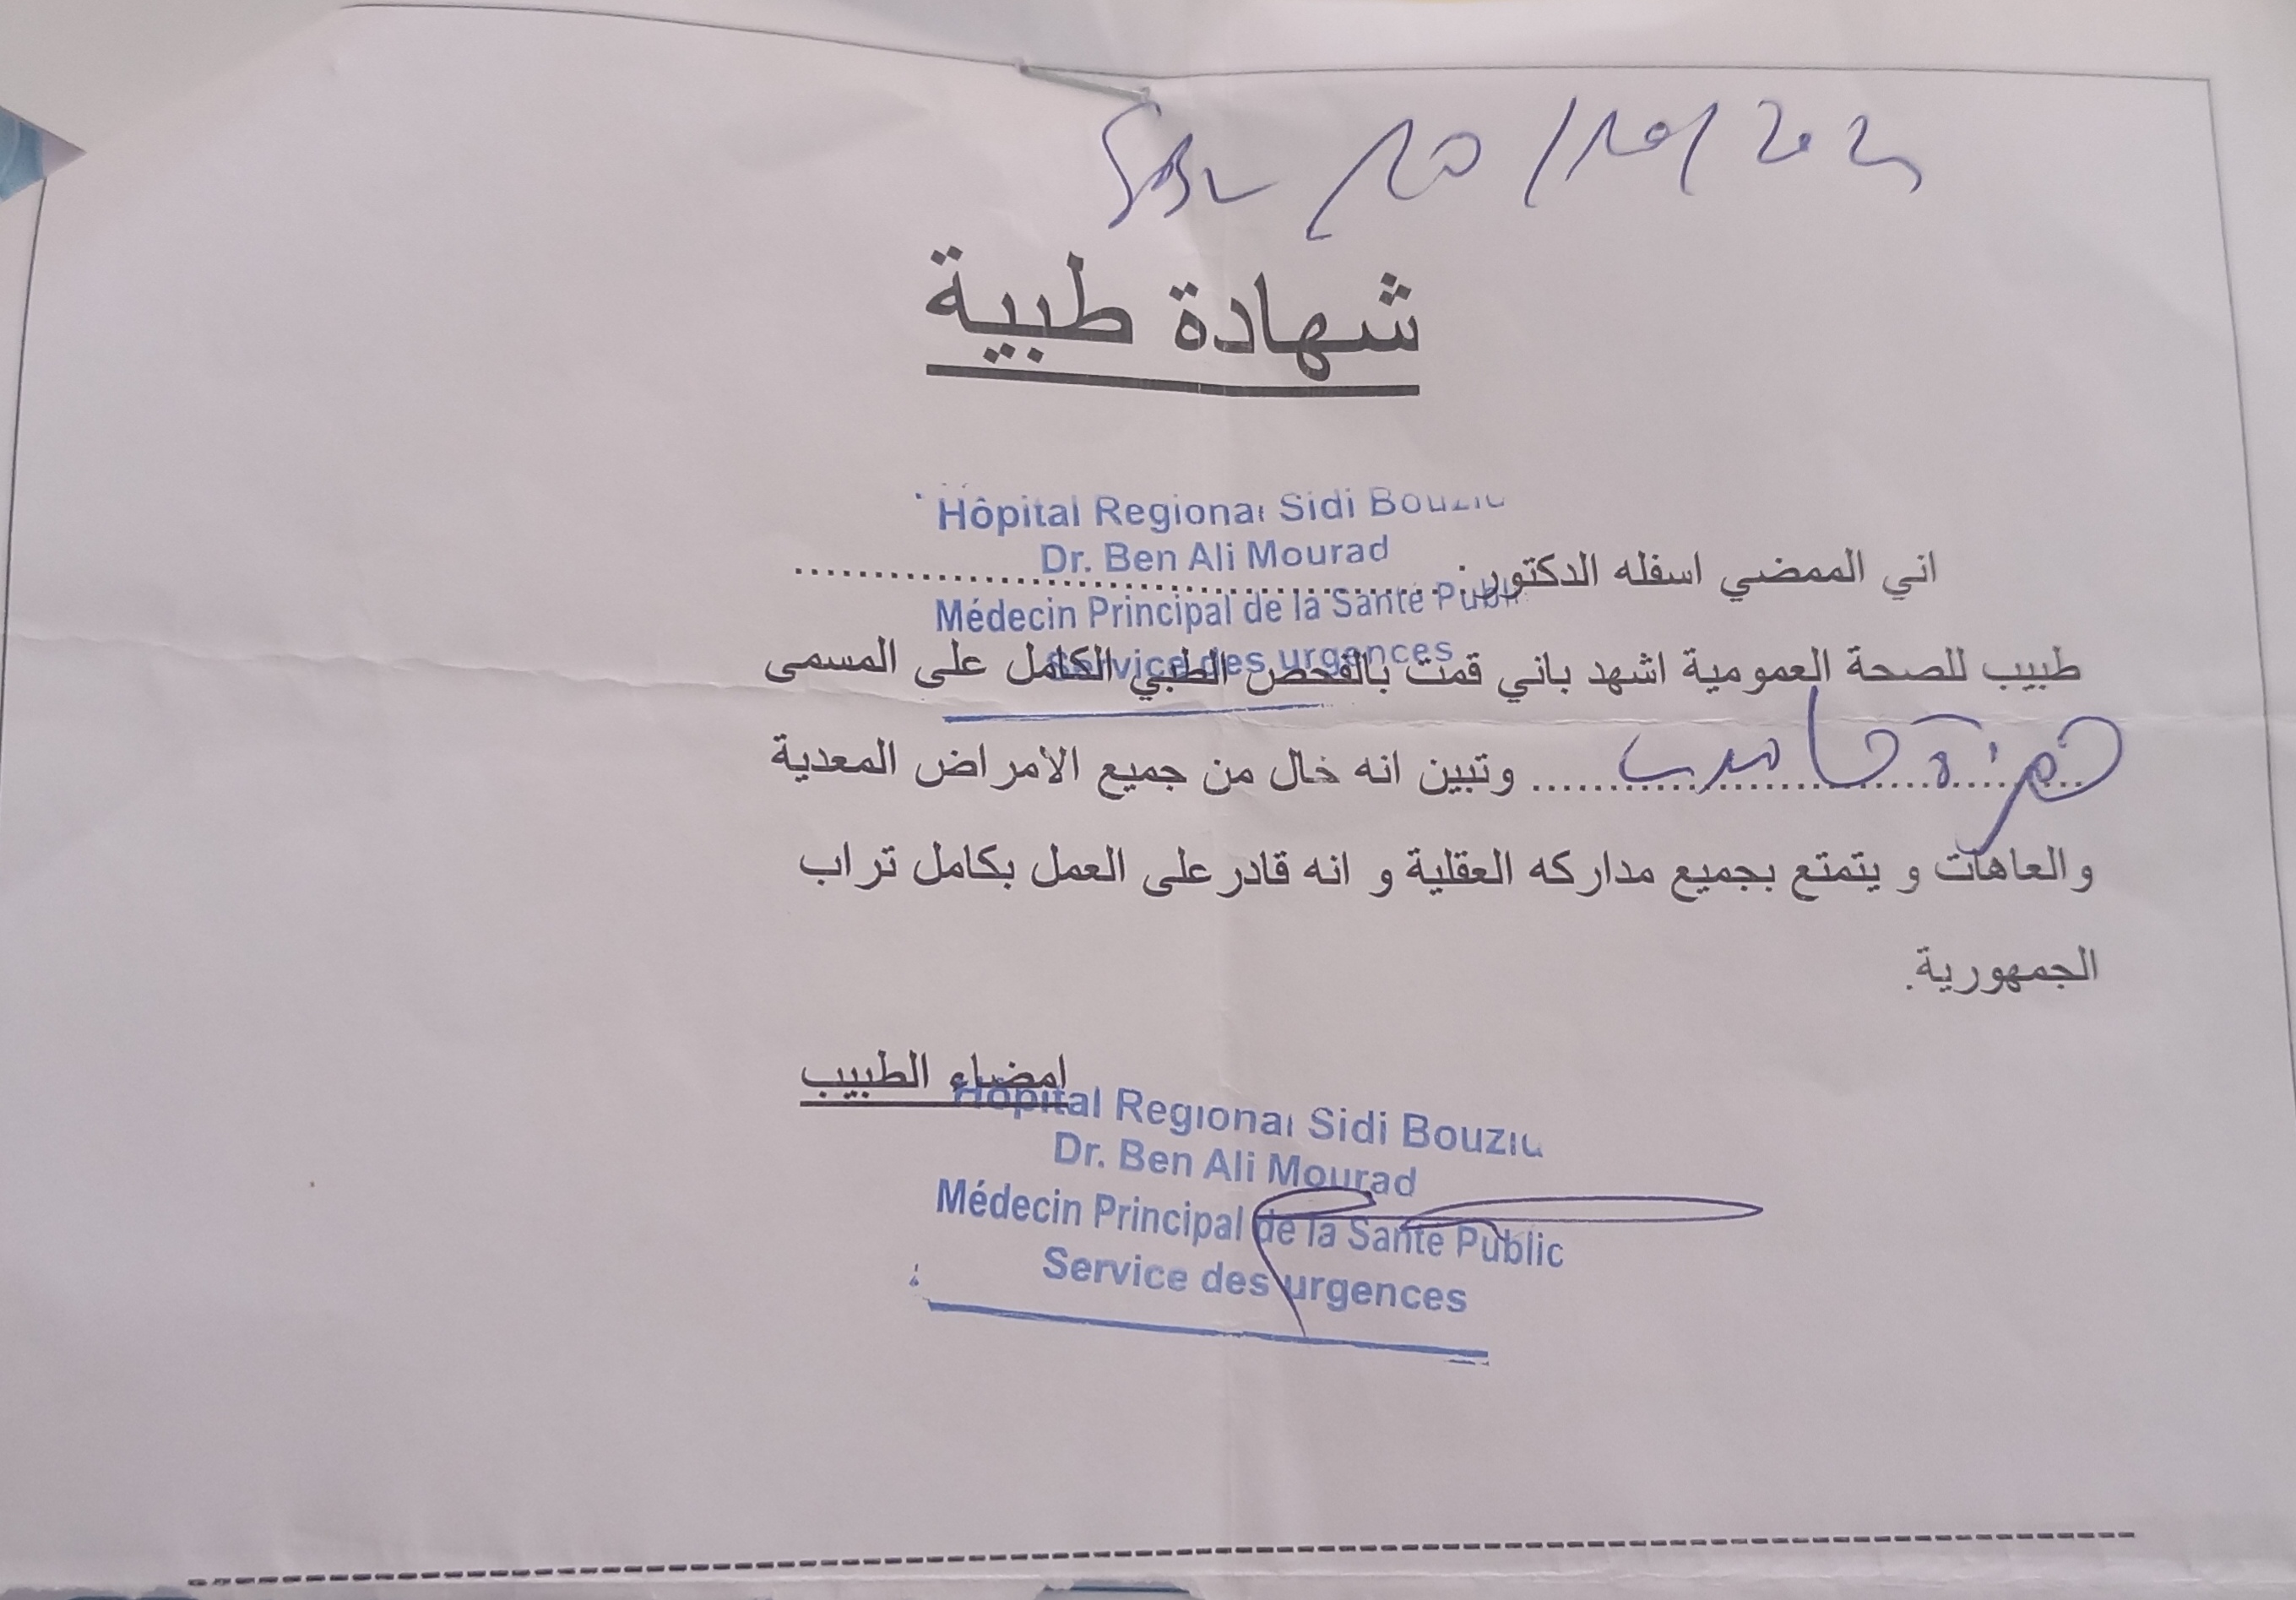 شهادة طبية
Hôpital Regional Sidi Bouzid
Dr. Ben Ali Mourad
اني الممضي اسفله الدكتور :
Médecin Principal de la Santé Public
Service des urgences
طبيب للصحة العمومية اشهد باني قمت بالفحص الطبي الكامل على المسمى
وتبين انه خال من جميع الامراض المعدية
والعاهات و يتمتع بجميع مداركه العقلية و انه قادر على العمل بكامل تراب
الجمهورية.
امضاء الطبيب
Hôpital Regional Sidi Bouzid
Dr. Ben Ali Mourad
Médecin Principal de la Santé Public
Service des urgences